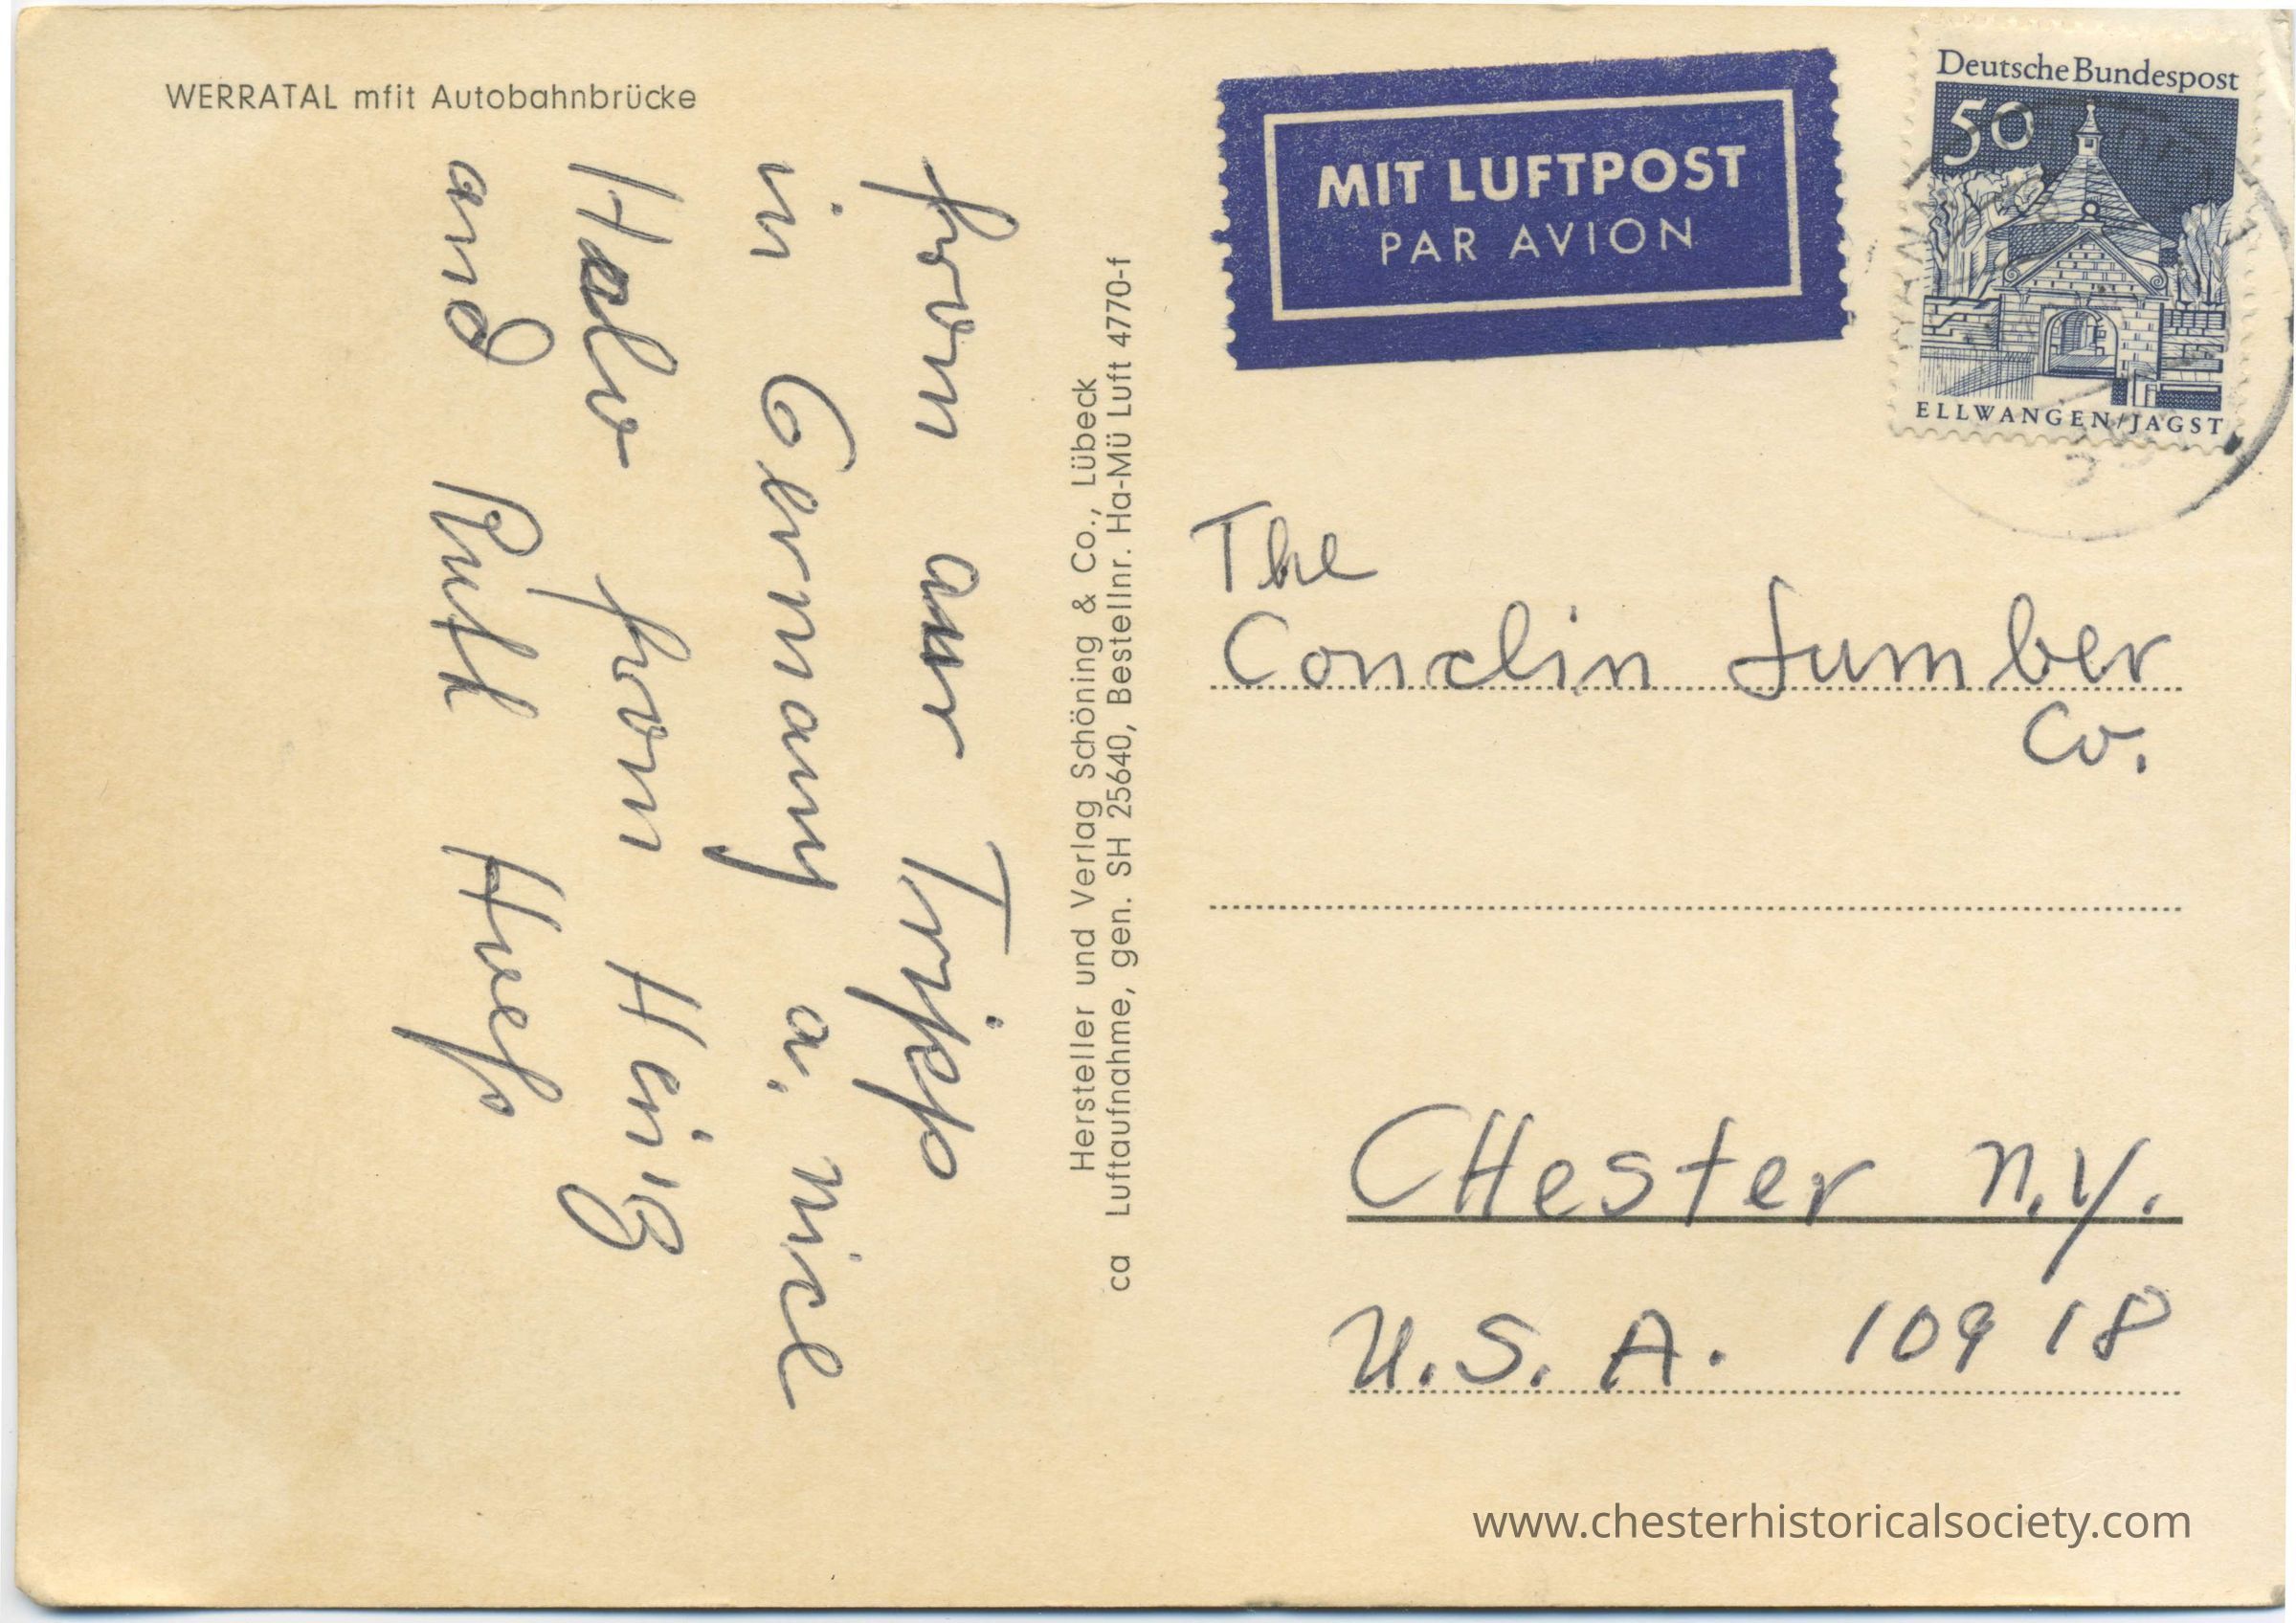 WERRATAL mfit Autobahnbrücke
from aur Tripp
in Germany a. nice
Halo from Heinz
and Ruth
Hersteller und Verlag Schöning & Co., Lübeck
ca Luftaufnahme, gen. SH 25640, Bestellnr. Ha-Mü Luft 4770-f
MIT LUFTPOST
PAR AVION
Deutsche Bundespost
50
ELLWANGEN/JAGST
The
Conclin Lumber
Co.
CHester N.Y.
U.S.A. 10918
www.chesterhistoricalsociety.com